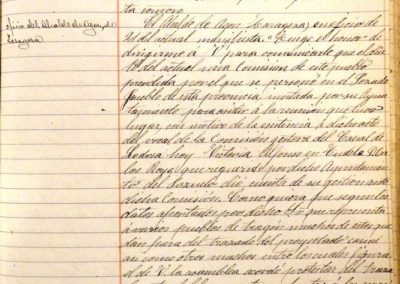 ta conozco.
oficio del Alcalde de Agon, de
Zaragoza
El Alcalde de Agon (Zaragoza) en oficio de
del actual manifiesta: "Tengo el honor de
dirigirme a V. para comunicarle que el dia
del actual una Comision de este pueblo
presidida por el que se personó en el
pueblo de esta provincia invitada por su Ayun
tamiento para asistir a la reunion que tuvo
lugar, con motivo de la asistencia a dicho acto
del vocal de la Comisión gestora del Canal de
Lodosa hoy Victoria Alfonso en Tudela D.
los Royo que requerido por dicho Ayuntamien
to del dio cuenta de su gestion ante
dicha Comision. Como quiera que segun los
datos aportados por dicho Sr. que representa
á varios pueblos de Aragón muchos de estos que
dan fuera del trazado del proyectado canal
asi como otros muchos entre los cuales figura
el de V. la asamblea acordó protestar del traza